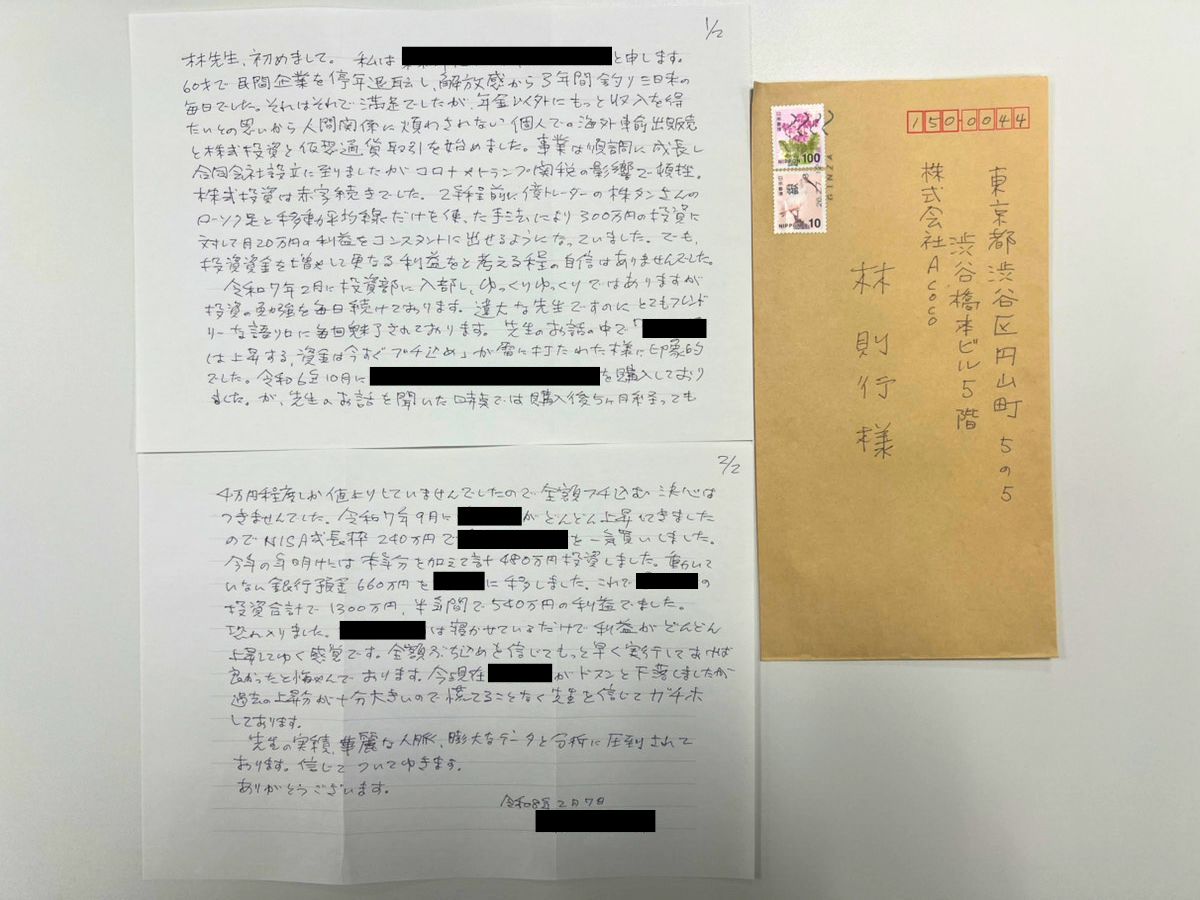 1/2
林先生、初めまして。 私は と申します。
60才で民間企業を停年退転し、解放感から3年間釣り三日末の
毎日でした。それはそれで満足でしたが、年金以外にもっと収入を得
たいとの思いから人間関係に煩わされない個人での海外輸出販売
と株式投資と仮想通貨取引を始めました。事業は順調に成長し
合同会社設立に至りましたがコロナ〆トランプ関税の影響で頓挫。
株式投資は赤字続きでした。2年程前に億トレーダーの株タンさんの
ローソク足と移動平均線だけを使った手法により300万円の投資に
対して月20万円の利益をコンスタントに出せるようになっていました。でも、
投資資金を増やして更なる利益をと考える程の自信はありませんでした。
令和7年2月に投資部に入部し、ゆっくりゆっくりではありますが
投資の勉強を毎日続けております。遺大な先生ですのにとてもフレンド
リーな語り口に毎回魅了されております。先生のお話の中で「
は上昇する、資金は今すぐブチ込め」が雷に打たれた様に印象的
でした。令和6年10月に を購入しており
ました。が、先生のお話を聞いた時点では購入後5ヶ月経っても
2/2
4万円程度しか値上りしていませんでしたので全額ブチ込む決心は
つきませんでした。令和7年9月に がどんどん上昇してきました
のでNISA成長枠240万円で を一気買いしました。
今年の年明けには本年分を加えて計480万円投資しました。動いて
いない銀行預金660万円を に移しました。これで の
投資合計で1300万円、半年間で540万円の利益でました。
恐れ入りました。 は寝かせているだけで利益がどんどん
上昇してゆく感覚です。全額ぶち込めを信じてもっと早く実行しておけば
良かったと悔やんでおります。今現在 がドスンと下落しましたが
過去の上昇分が十分大きいので慌てることなく先生を信じてガチホ
しております。
先生の実積、華麗な人脈、膨大なデータと分析に圧倒されて
おります。信じてついてゆきます。
ありがとうございます。
令和8年2月7日
150-0044
東京都渋谷区円山町5の5
渋谷橋本ビル5階
株式会社Acoco
林則行様
日本郵便
NIPPON 100
日本郵便
NIPPON 10
GINZA